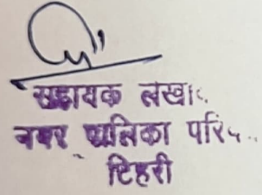 सहायक लेखा
नगर पालिका परि
टिहरी